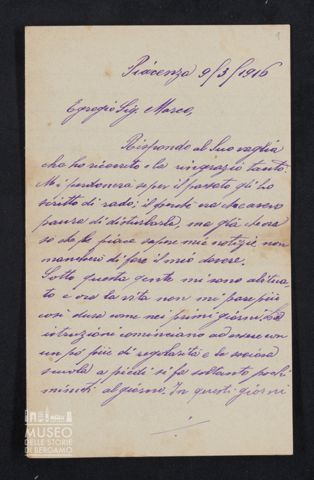 1
Piacenza 9/3/1916
Egregio Sig. Marco,
Rispondo al Suo vaglia
che ho ricevuto e la ringrazio tanto.
Mi perdonerà se per il passato gli ho
scritto di rado; il perchè era che avevo
paura di disturbarla, ma già che ora
so che le piace sapere mie notizie non
mancherò di fare il mio dovere.
Sotto questa gente mi sono abitua-
to e ora la vita non mi pare più
così dura come nei primi giorni. Le
istruzioni cominciano ad essere con
un pò più di regolarità e la
scuola a piedi si fa soltanto pochi
minuti al giorno. In questi giorni
MUSEO
DELLE STORIE
DI BERGAMO